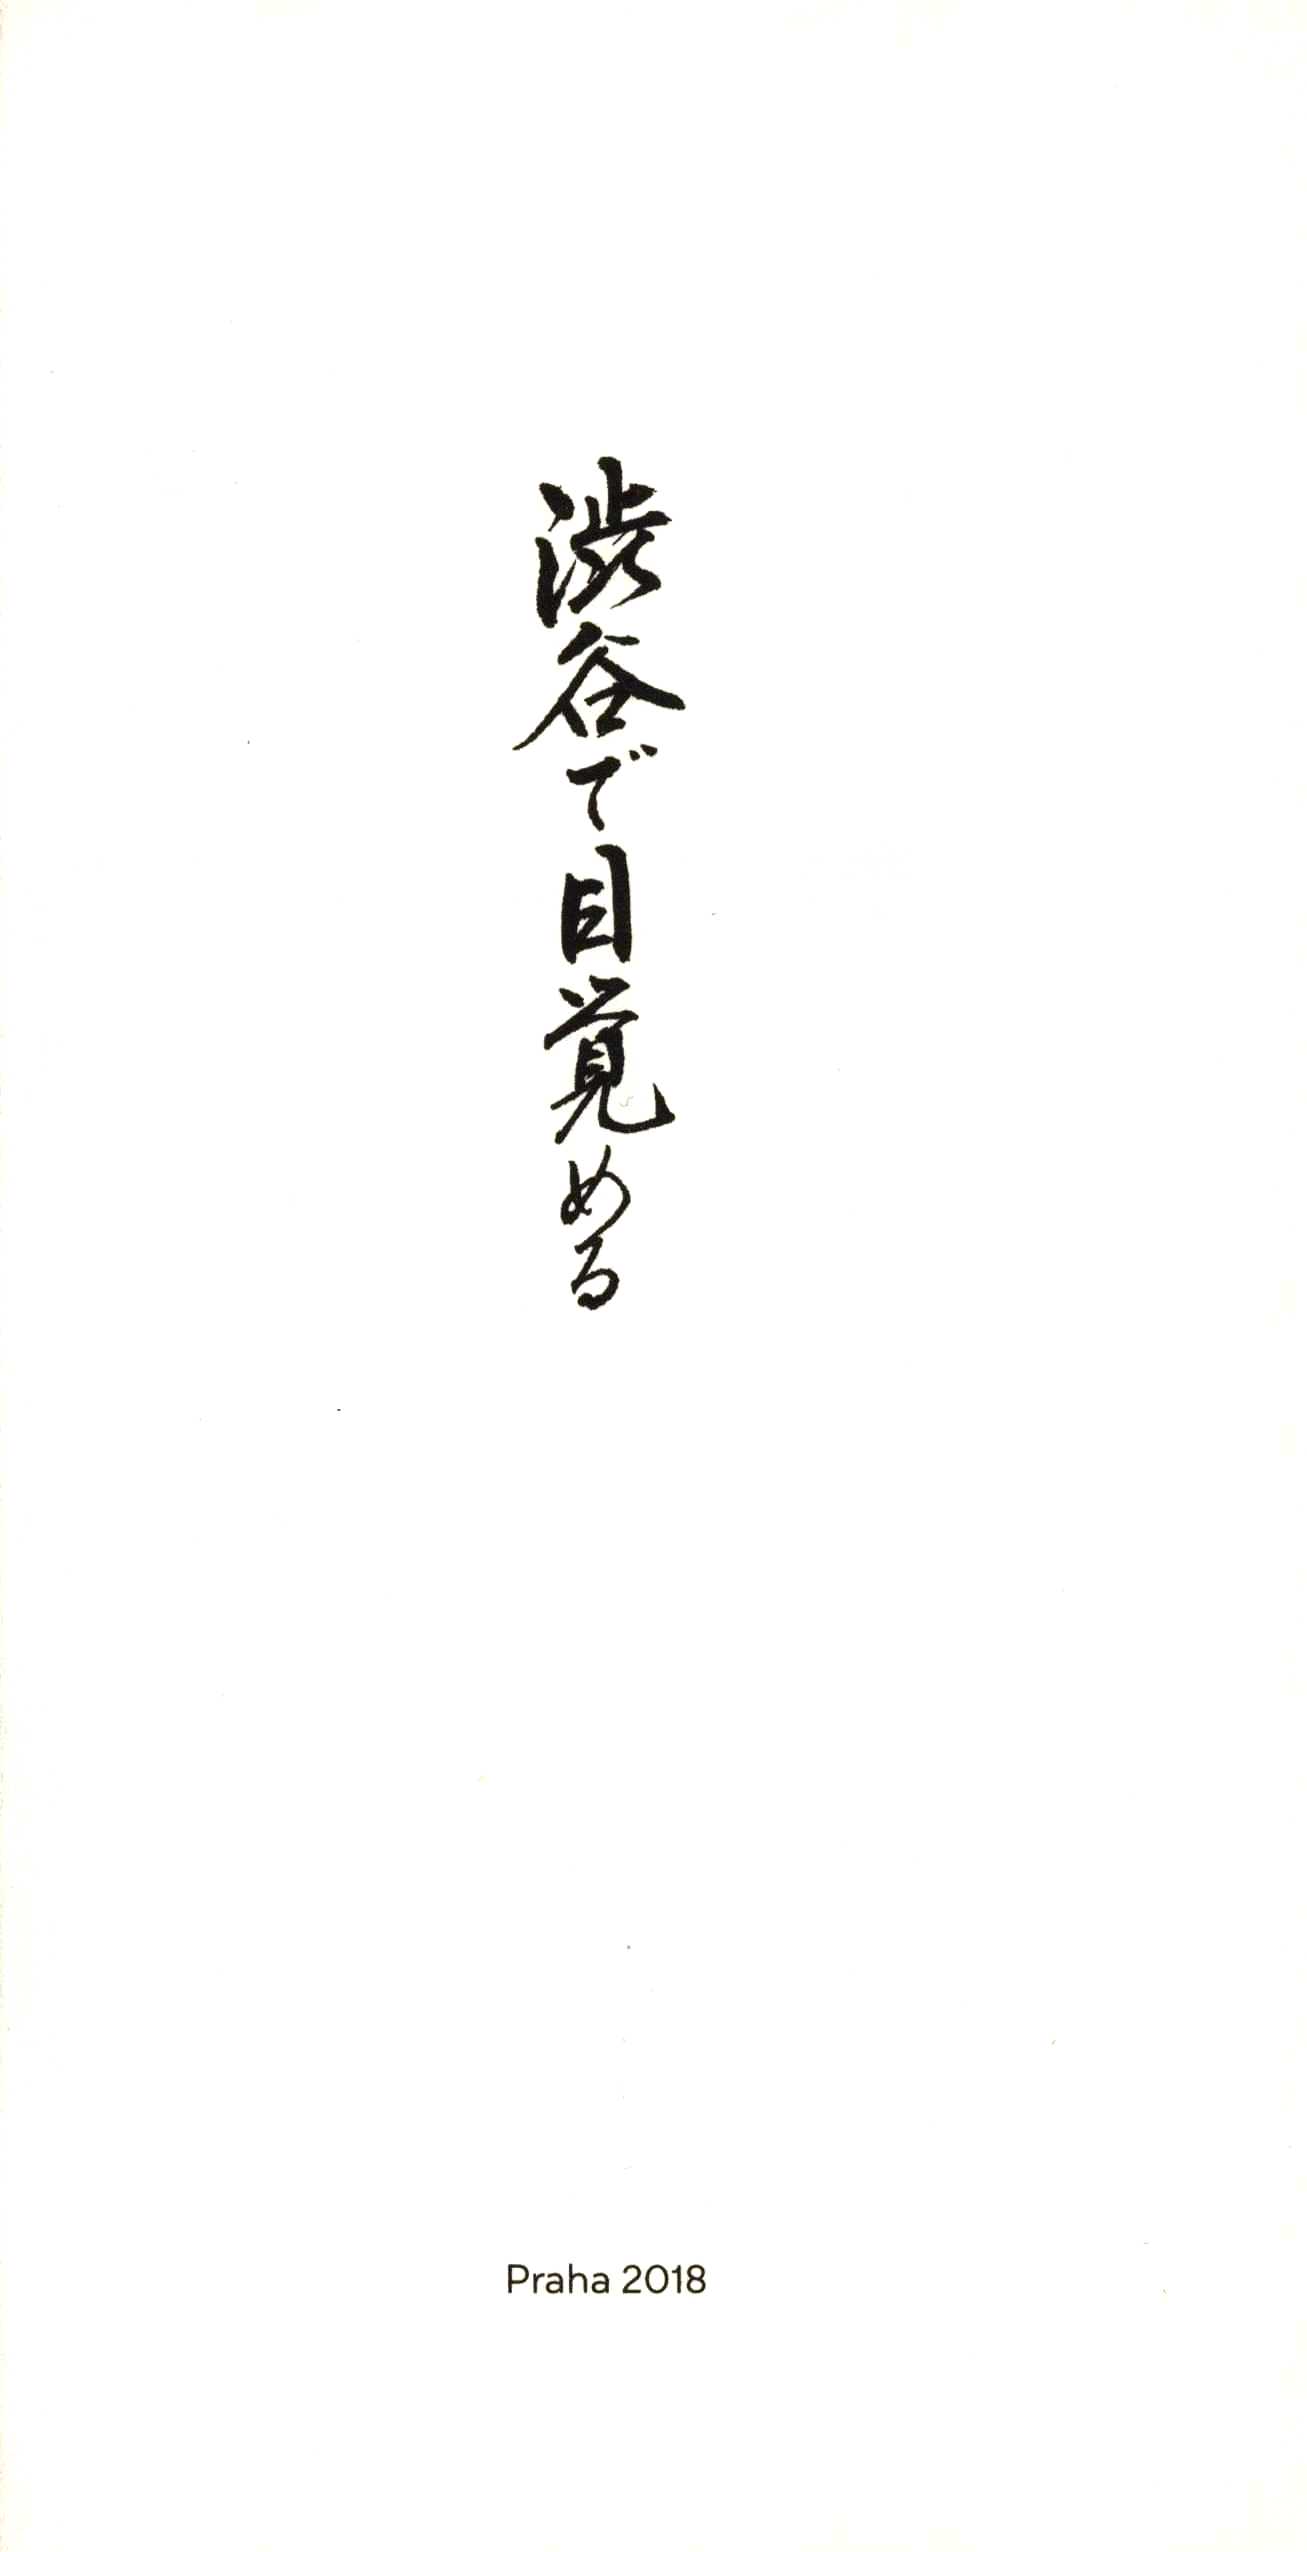 渋谷で目覚める
Praha 2018